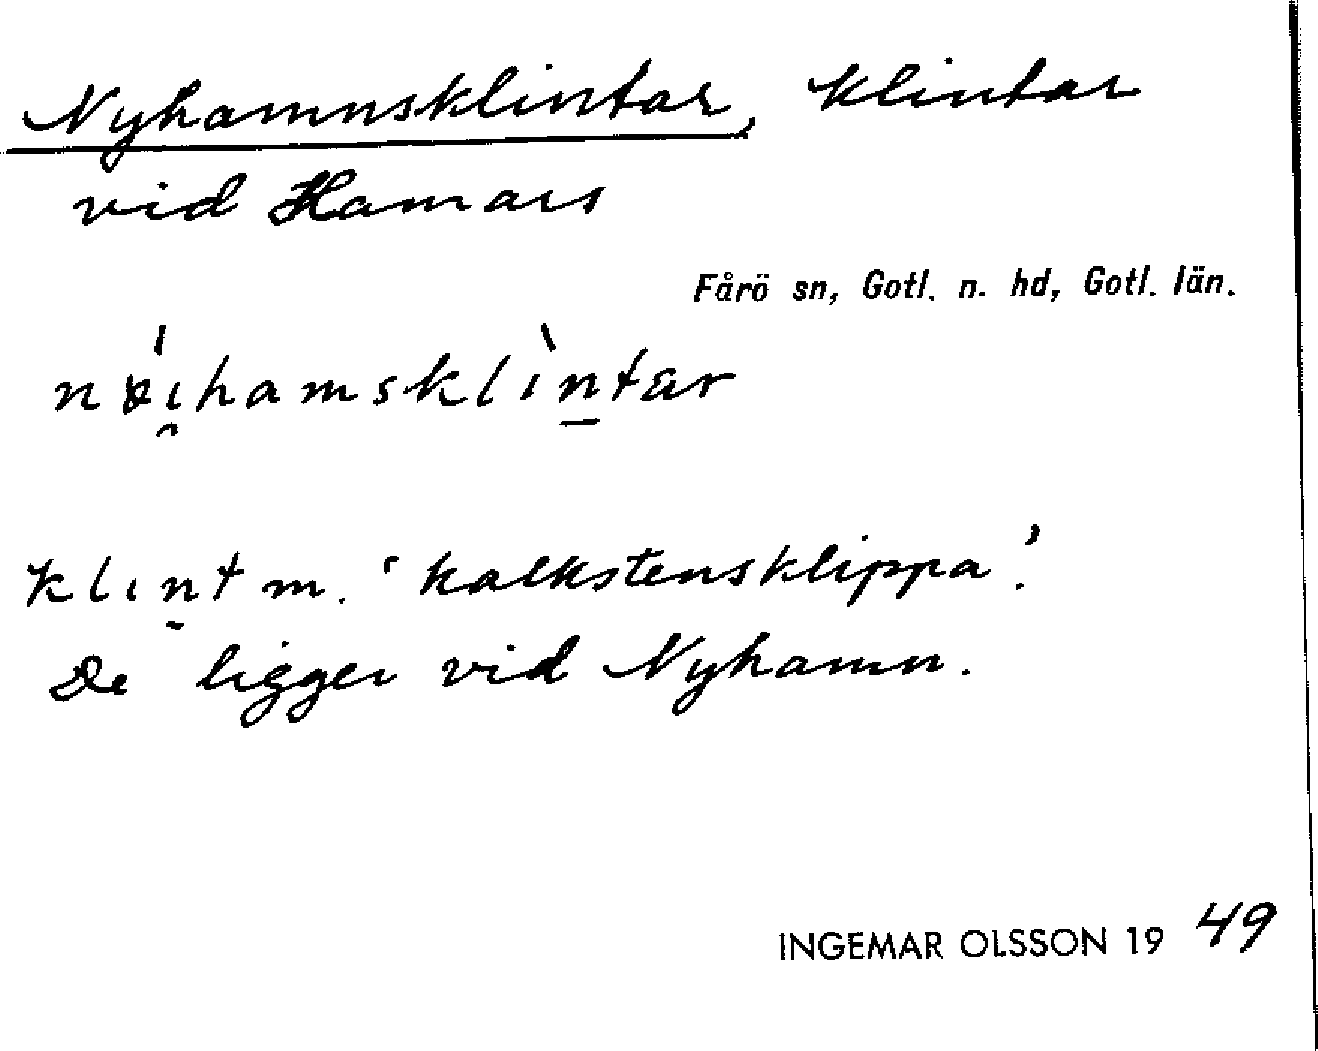 Nyhamnsklintar, klintar
vid Hamars
Fårö sn, Gotl. n. hd, Gotl. län.
nøí̯hamsklìn̠tar
klın̠t m. 'kalkstensklippa'.
De ligger vid Nyhamn.
INGEMAR OLSSON 19 49